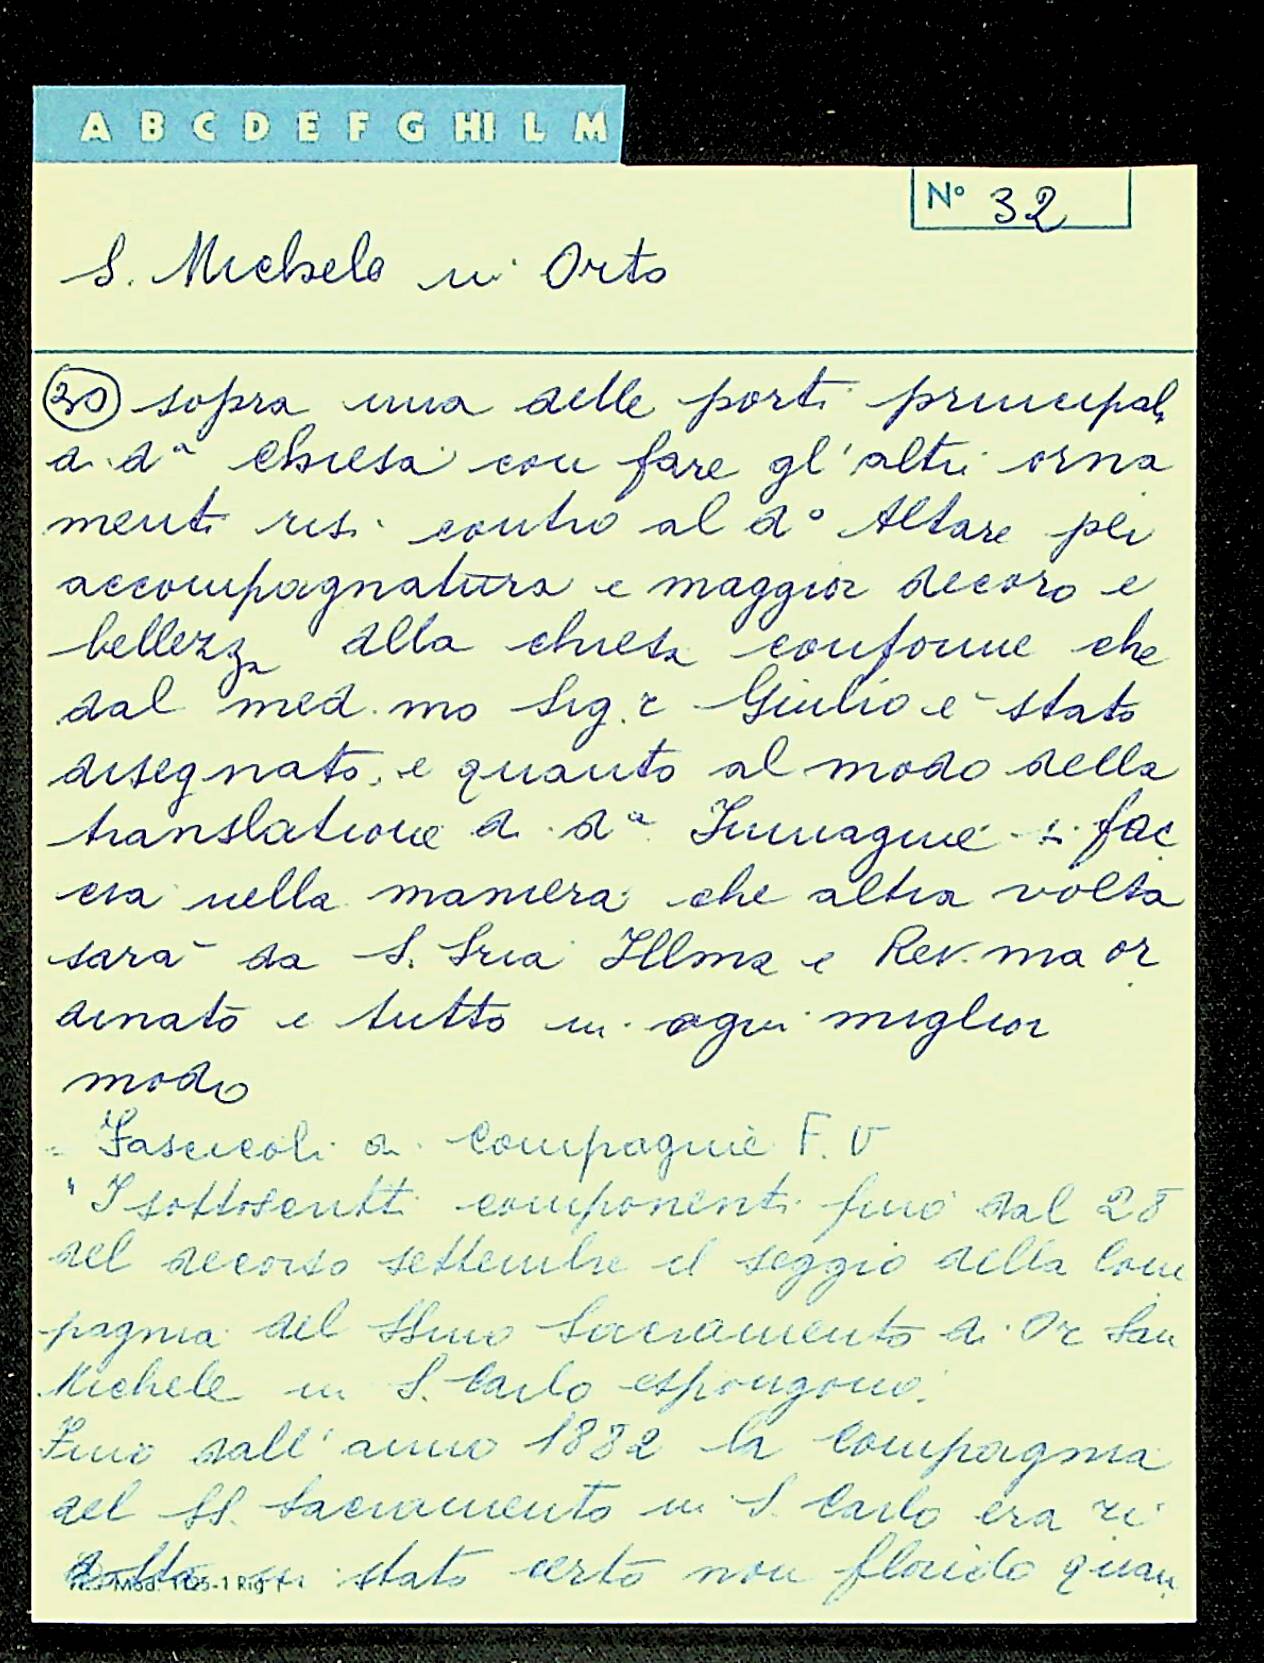 A B C D E F G HI L M
N° 32
S. Michele in Orto
30 sopra una delle porti principali
di da chiesa con fare gl'altri orna
menti risi contro al do Altare per
accompagnatura e maggior decoro e
bellezza alla chiesa conforme che
dal med.mo Sig.r Giulio è stato
disegnato, e quanto al modo della
translatione di da Immagine si fac
cia nella maniera che altra volta
sarà da S. Sria Illma e Rev.ma or
dinato e tutto in ogni miglior
modo
= Fascicoli di Compagnie F. V
"I sottoscritti componenti fino dal 28
del decorso settembre il seggio della Com
pagnia del SSmo Sacramento di Or San
Michele in S. Carlo espongono:
Fino dall'anno 1882 la Compagnia
del SS. Sacramento in S. Carlo era ri
dotta in stato certo non florido quan
Mod. 1125-1 Rig